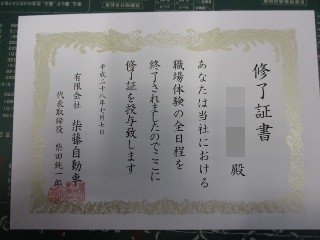 修了証書
殿
あなたは当社における
職場体験の全日程を
終了されましたのでここに
修了証を授与致します
平成二十八年七月七日
有限会社 柴藤自動車
代表取締役 柴田純一郎